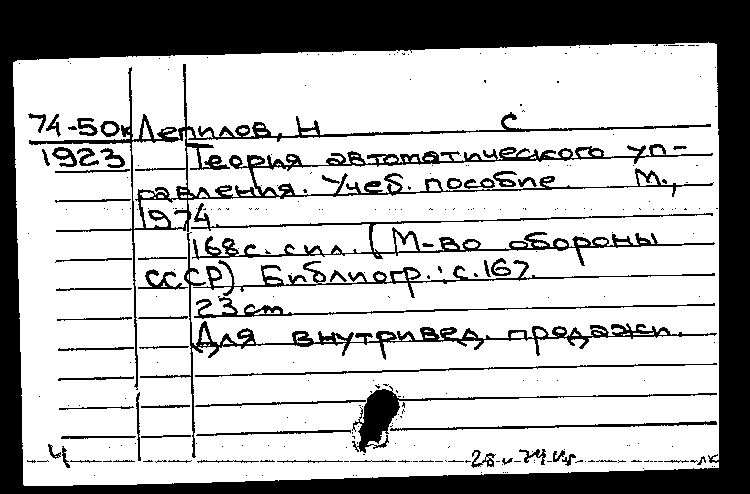 74-50к Лепилов, Н С
1923 Теория автоматического уп-
равления. Учеб. пособие. М.,
1974.
168с. с ил. (М-во обороны
СССР). Библиогр.: с. 167.
23 cm.
Для внутривед. продажи.
Ч